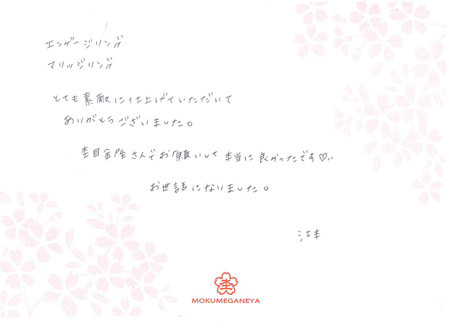 エンゲージリング
マリッジリング
とても素敵に仕上げていただいて
ありがとうございました。
杢目金屋さんでお願いして本当に良かったです♡..
お世話になりました。
杢
MOKUMEGANEYA